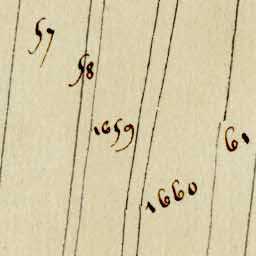 57
58
1659
1660
61